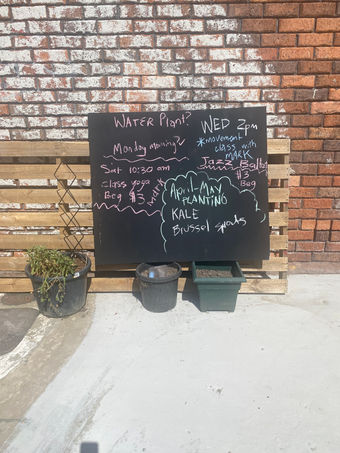 WATER Plant?
Monday morning?
Sat 10:30 am
class yoga
Beg $3
WED 2pm
*movement
class with
MARK
Jazz Ballet
$3
Beg
April-MAY
PLANTING
KALE
Brussel sprouts